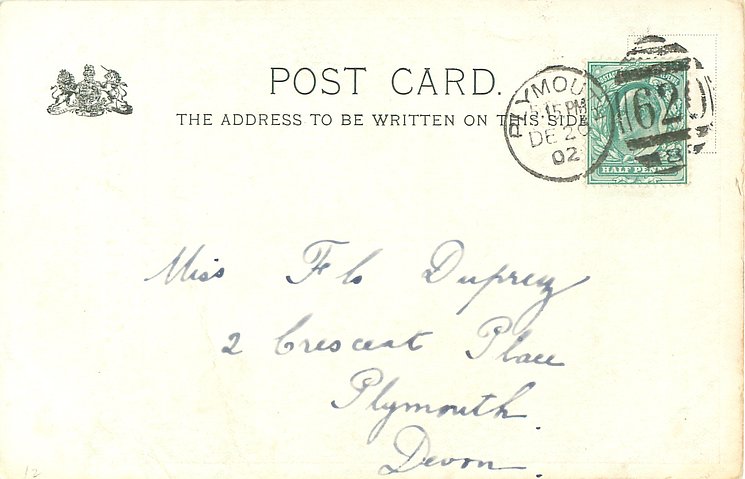 POST CARD.
THE ADDRESS TO BE WRITTEN ON THIS SIDE
PLYMOUTH
5.15 PM
DE 20
02
620
8
HALF PENNY
Miss Flo Duprey
2 Crescent Place
Plymouth.
Devon.
12